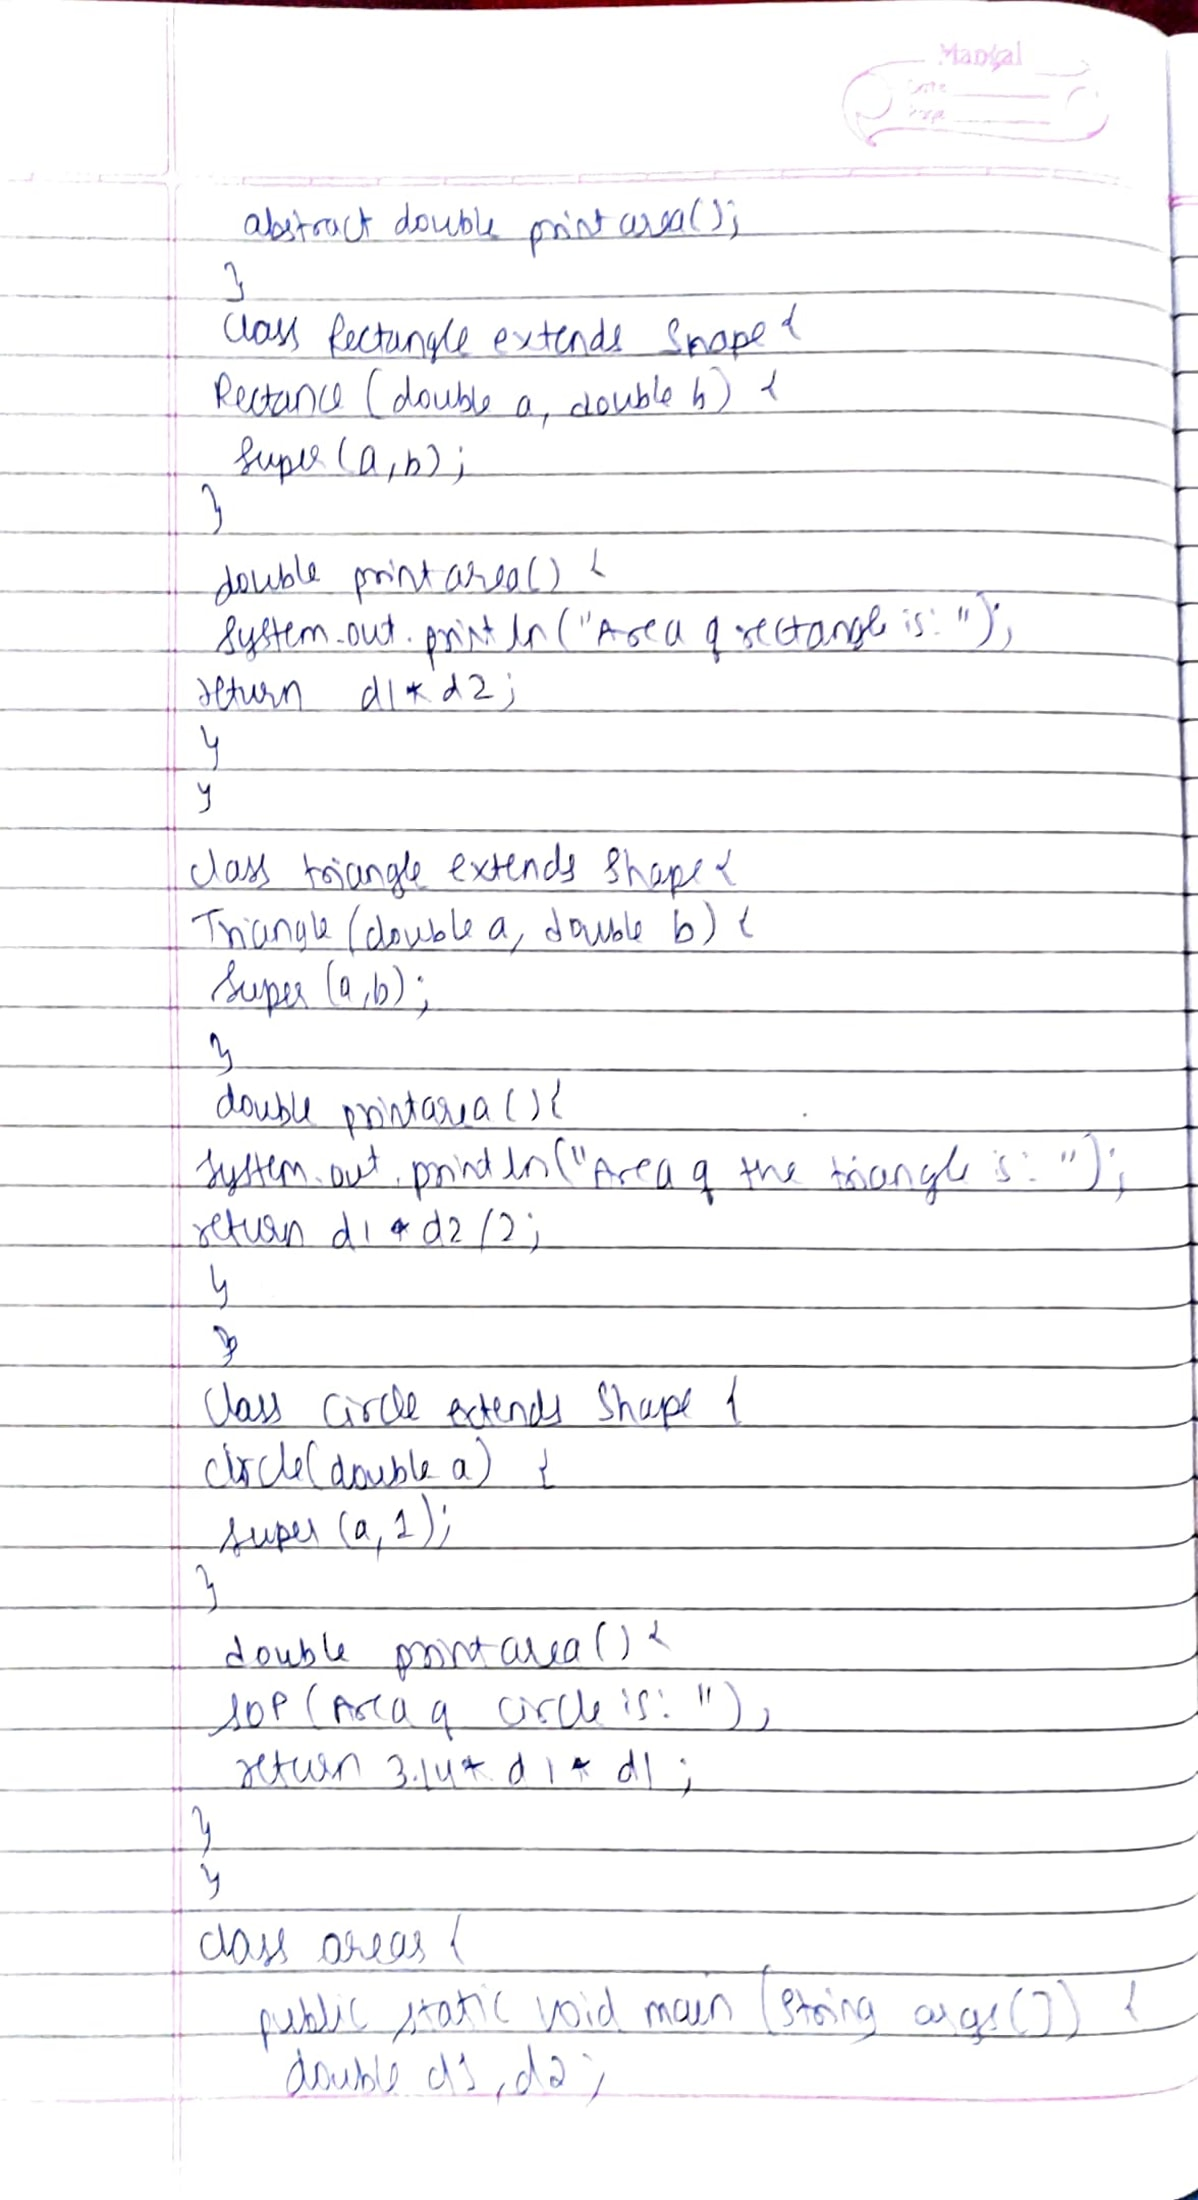 Mangal
Date
Page
abstract double printarea();
}
class Rectangle extends Shape {
Rectance (double a, double b) {
super (a,b);
}
double printarea() {
System.out.println("Area of rectangle is: ");
return d1 * d2;
}
}
class triangle extends Shape {
Triangle (double a, double b) {
super (a,b);
}
double printarea () {
System.out.println("Area of the triangle is: ");
return d1 * d2 /2;
}
}
class Circle extends Shape {
circle(double a) {
super (a, 1);
}
double printarea () {
SOP (Area of circle is: ");
return 3.14 * d1 * d1 ;
}
}
class areas {
public static void main (String args[]) {
double d1, d2;